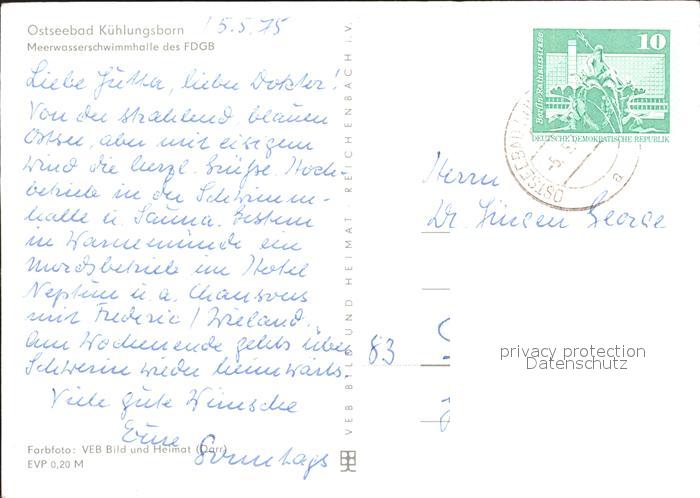 Ostseebad Kühlungsborn
Meerwasserschwimmhalle des FDGB
5.5.75
Liebe Jutta, lieber Doktor!
Von der strahlend blauen
Ostsee, aber mit eisigem
Wind die herzl. Grüße. Hoch-
betrieb in der Schwimm-
halle u. Sauna. Gestern
in Warnemünde ein
Mordsbetrieb im Hotel
Neptun u. a. Chansons
mit Frederic / Wieland.
Am Wochenende gehts über
Schwerin wieder heimwärts.
Viele gute Wünsche
Eure Sonntags
Farbfoto: VEB Bild und Heimat (Darr)
EVP 0,20 M
VEB BILD UND HEIMAT · REICHENBACH i. V.
10
Berlin · Rathausstraße
DEUTSCHE DEMOKRATISCHE REPUBLIK
OSTSEEBAD
a
Herrn
Dr. Jürgen George
83
privacy protection
Datenschutz